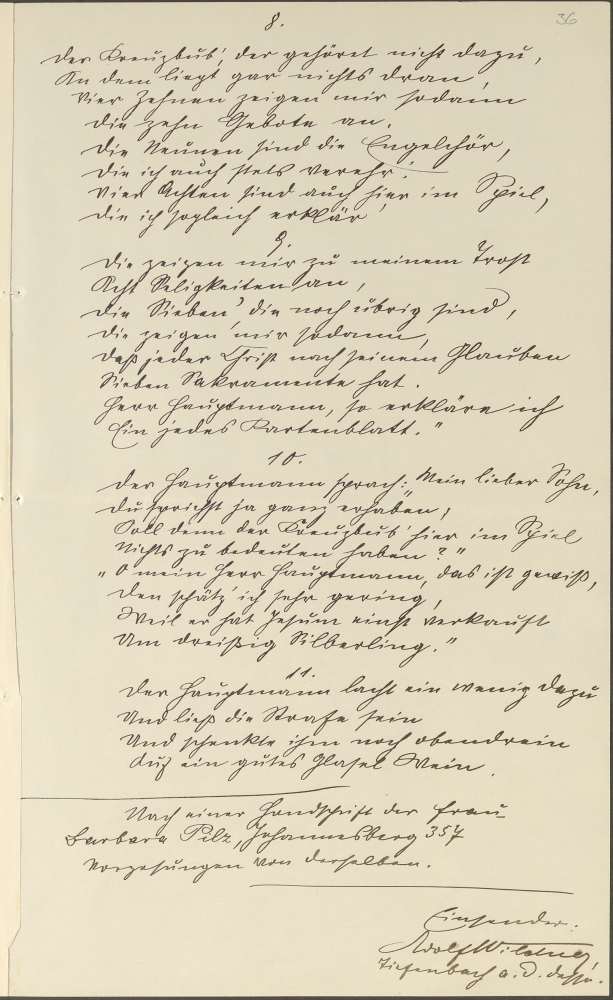 8.
36
Der Kreuzbub', der gehöret nicht dazu,
An dem liegt gar nichts dran,
Vier Zehnen zeigen mir sodann
Die zehn Gebote an.
Die Neunen sind die Engelchör,
Die ich auch stets verehr'.
Vier Achten sind auch hier im Spiel,
Die ich sogleich erklär'
9.
Die zeigen mir zu meinem Trost
Acht Seligkeiten an,
Die Sieben, die noch übrig sind,
Die zeigen mir sodann,
Daß jeder Christ nach seinem Glauben
Sieben Sakramente hat.
Herr Hauptmann, so erkläre ich
Ein jedes Kartenblatt."
10.
Der Hauptmann sprach: "Mein lieber Sohn,
Du sprichst ja ganz erhaben,
Soll denn der Kreuzbub' hier im Spiel
Nichts zu bedeuten haben?"
"O mein Herr Hauptmann, das ist gewiß,
Den schätz' ich sehr gering,
Weil er hat Jesum einst verkauft
Um dreißig Silberling."
11.
Der Hauptmann lacht ein wenig dazu
Und ließ die Strafe sein
Und schenkte ihm noch obendrein
Auf ein gutes Glasel Wein.
Nach einer Handschrift der Frau
Barbara Pilz, Johannesberg 357
Vorgesungen von derselben.
Einsender:
Adolf Wildner,
Tiefenbach a. d. Desse.